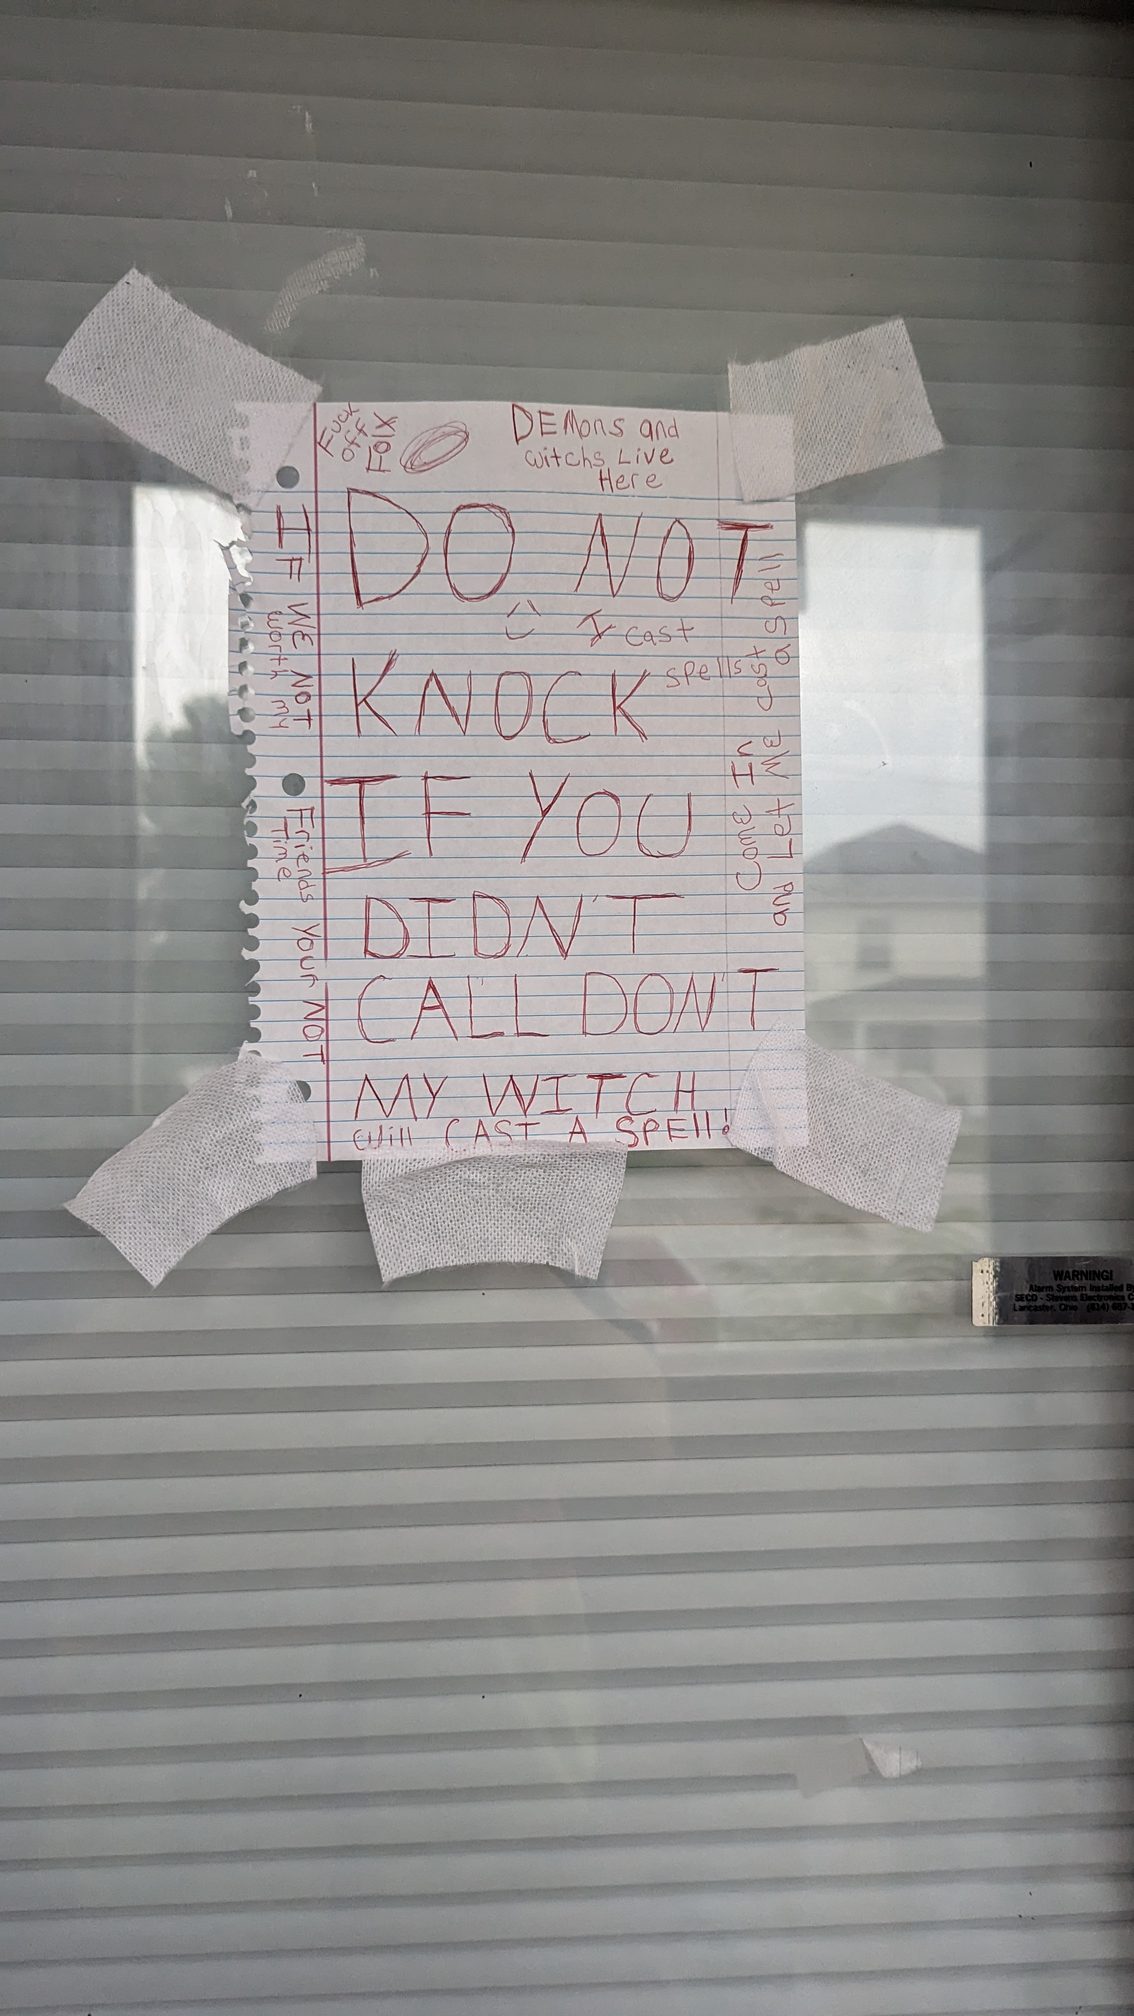 Fuck
off
Folx
DEMons and
witchs Live
Here
DO NOT
I cast
spells
KNOCK
IF YOU
DIDN'T
CALL DON'T
MY WITCH
will CAST A SPEll!
IF WE NOT Friends Your NOT
worth my Time
Come In
and Let Me cast a spell
WARNING!
Alarm System Installed By
SECO - Stevens Electronics
Lancaster, Ohio (614) 687-